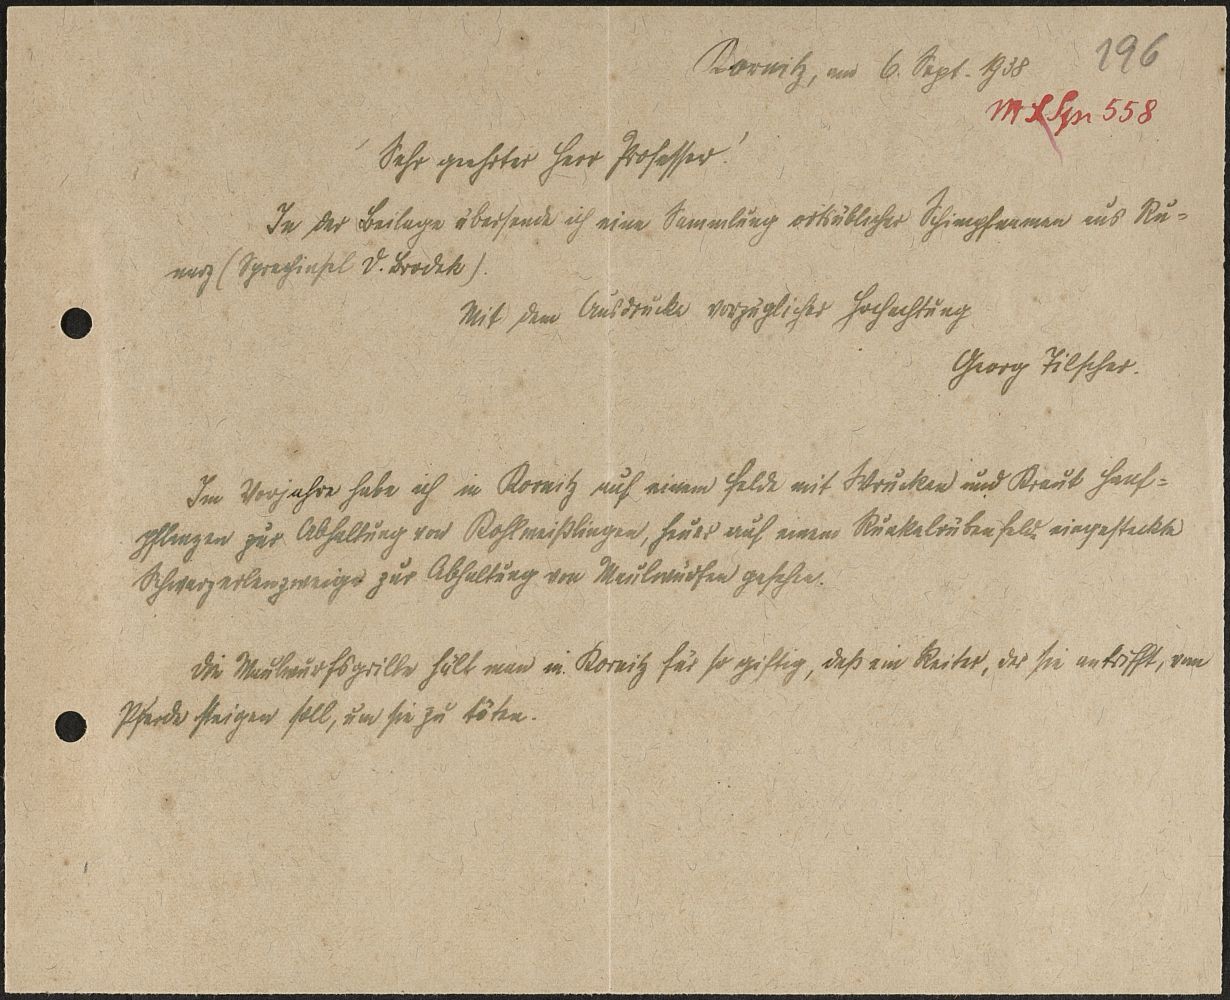 196
Kornitz, am 6. Sept. 1938
558
Sehr geehrter Herr Professor!
In der Beilage übersende ich eine Sammlung ortsüblicher Schimpfnamen aus Ru-
narz (Sprachinsel D. Brodek).
Mit dem Ausdrucke vorzüglicher Hochachtung
Georg Tilscher.
Im Vorjahre habe ich in Kornitz auf einem Felde mit Wrucken und Kraut Hanf-
pflanzen zur Abhaltung von Kohlweißlingen, heuer auf einem Runkelrübenfeld eingesteckte
Schwarzerlenzweige zur Abhaltung von Maulwürfen gesehen.
Die Maulwurfsgrille hält man in Kornitz für so giftig, daß ein Reiter, der sie antrifft, vom
Pferde steigen soll, um sie zu töten.